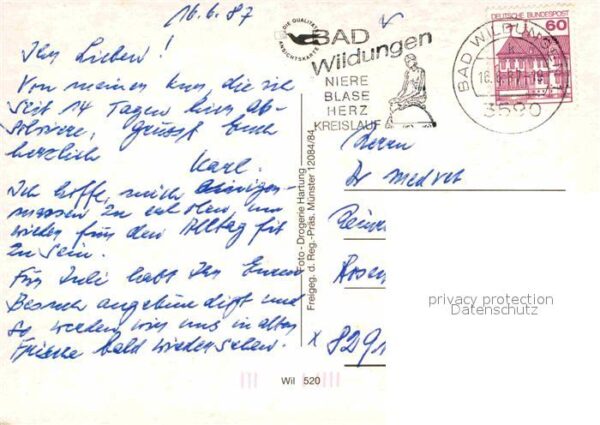 16.6.87
Ihr Lieben!
Von meiner Kur, die ich
seit 14 Tagen hier ab-
solviere, grüsst Euch
herzlich
Karl.
Ich hoffe, mich einiger-
massen zu erholen, um
wieder für den Alltag fit
zu sein.
Für Juli habt Ihr Euren
Besuch angekündigt und
so werden wir uns in alter
Frische bald wiedersehen.
DIE QUALITÄTS
ANSICHTSKARTE
BAD
Wildungen
NIERE
BLASE
HERZ
KREISLAUF
DEUTSCHE BUNDESPOST
60
BAD WILDUNGEN
16.6.87-19
3590
Foto - Drogerie Hartung
Freigeg. d. Reg.-Präs. Münster 12084/84
Herrn
Dr medvet
Reiner
Rosen
x 8291
privacy protection
Datenschutz
Wil 520